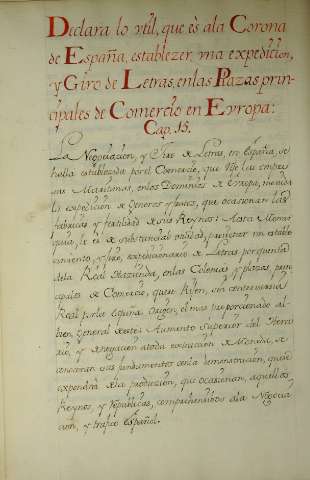 Declara lo vtil, que es ala Corona
de España, establezer, vna expedicion,
y Giro de Letras, en las Plazas prin-
cipales de Comercio en Evropa:
Cap. 15.
La Negociacion, y Giro de Letras, en España, se
halla establezida por el Comercio, que
Maritimas, en los Dominios de Europa,
la expedicion de Generos, y frutos, que ocasionan las
fabricas y fertilidad de sus Reynos: A esta Monar
quia, le es de substancial utilidad,
cimiento, y fixo, expedicionario de Letras por quenta
dela Real Hazienda, en las Colonias, y plazas prin
cipales de Comercio, que
Real por la Origen, el mas proporcionado al
bien General de este: Aumento Superior del Thera
rio, y a toda extraccion de Moneda, se
sus fundamentos en la demonstracion, que se
expondra dela produccion, que ocasionan, aquellos
Reynos, y Republicas, comprehendidos ala Negocia
cion, y trafico Español.